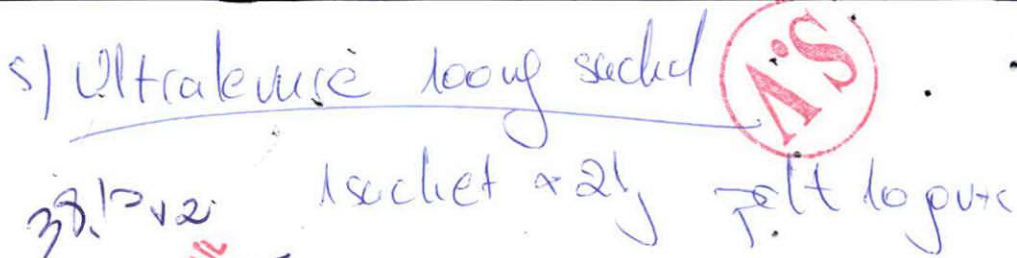 5) Ultralevure 100mg sachet V.S
38.10 x 2 1 sachet x 2/j pdt 10 jours